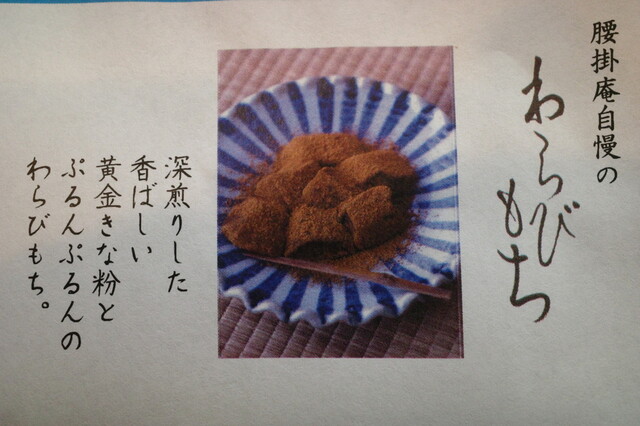 腰掛庵自慢の
わらびもち
深煎りした
香ばしい
黄金きな粉と
ぷるんぷるんの
わらびもち。